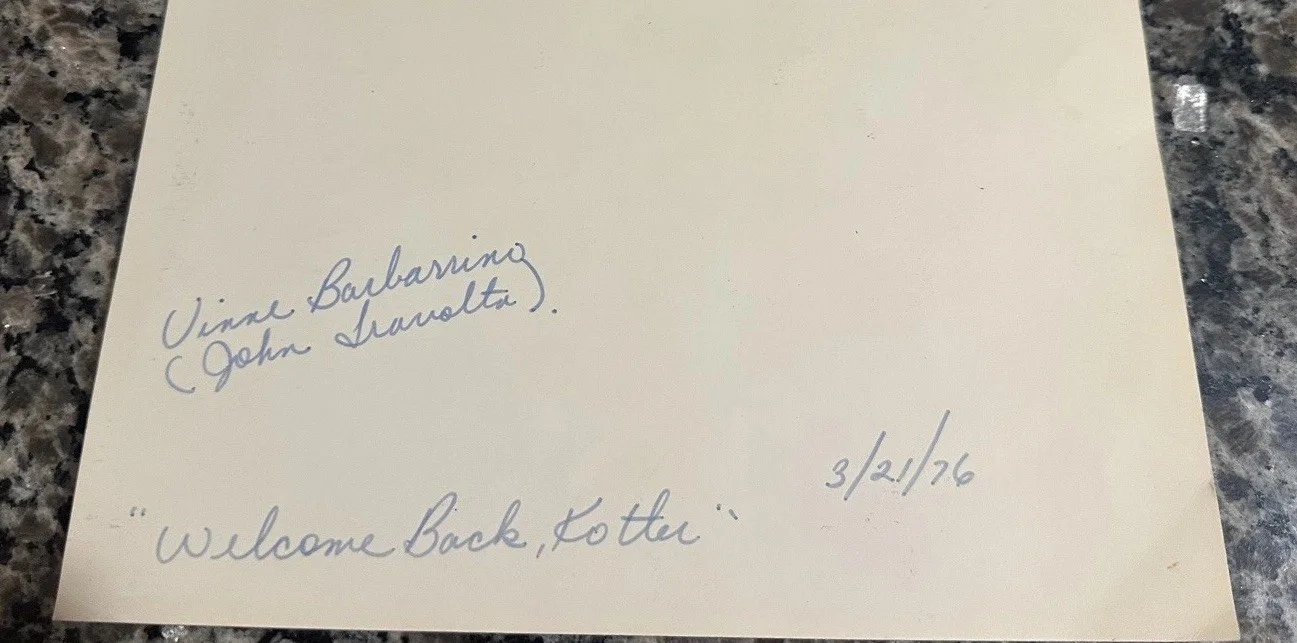 Vinne Barbarrino
(John Travolta).
3/21/76
"Welcome Back, Kotter"